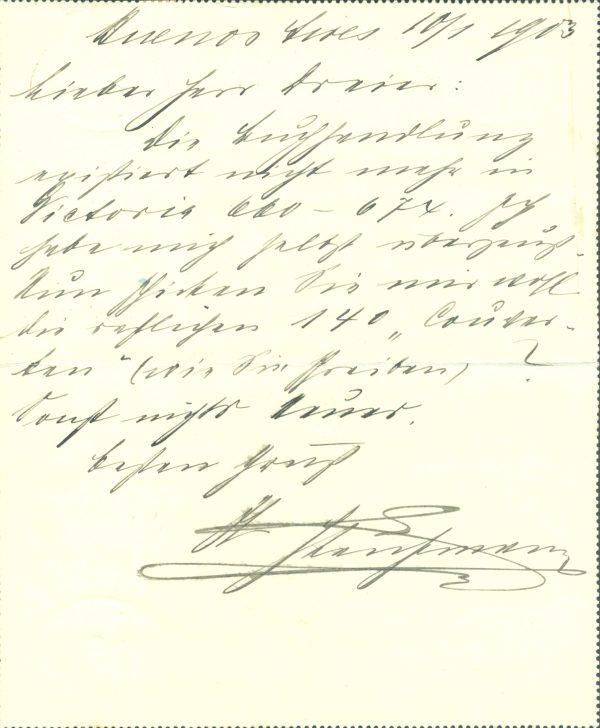 Buenos Aires 10/1 1903
Lieber Herr Dreier:
Die Buchhandlung
existiert nicht mehr in
Victoria 660 – 674. Ich
habe mich selbst überzeugt.
Nun schicken Sie mir wohl
die restlichen 140 „Couver-
ten" (wie Sie schreiben) ?
Sonst nichts Neues.
Besten Gruß